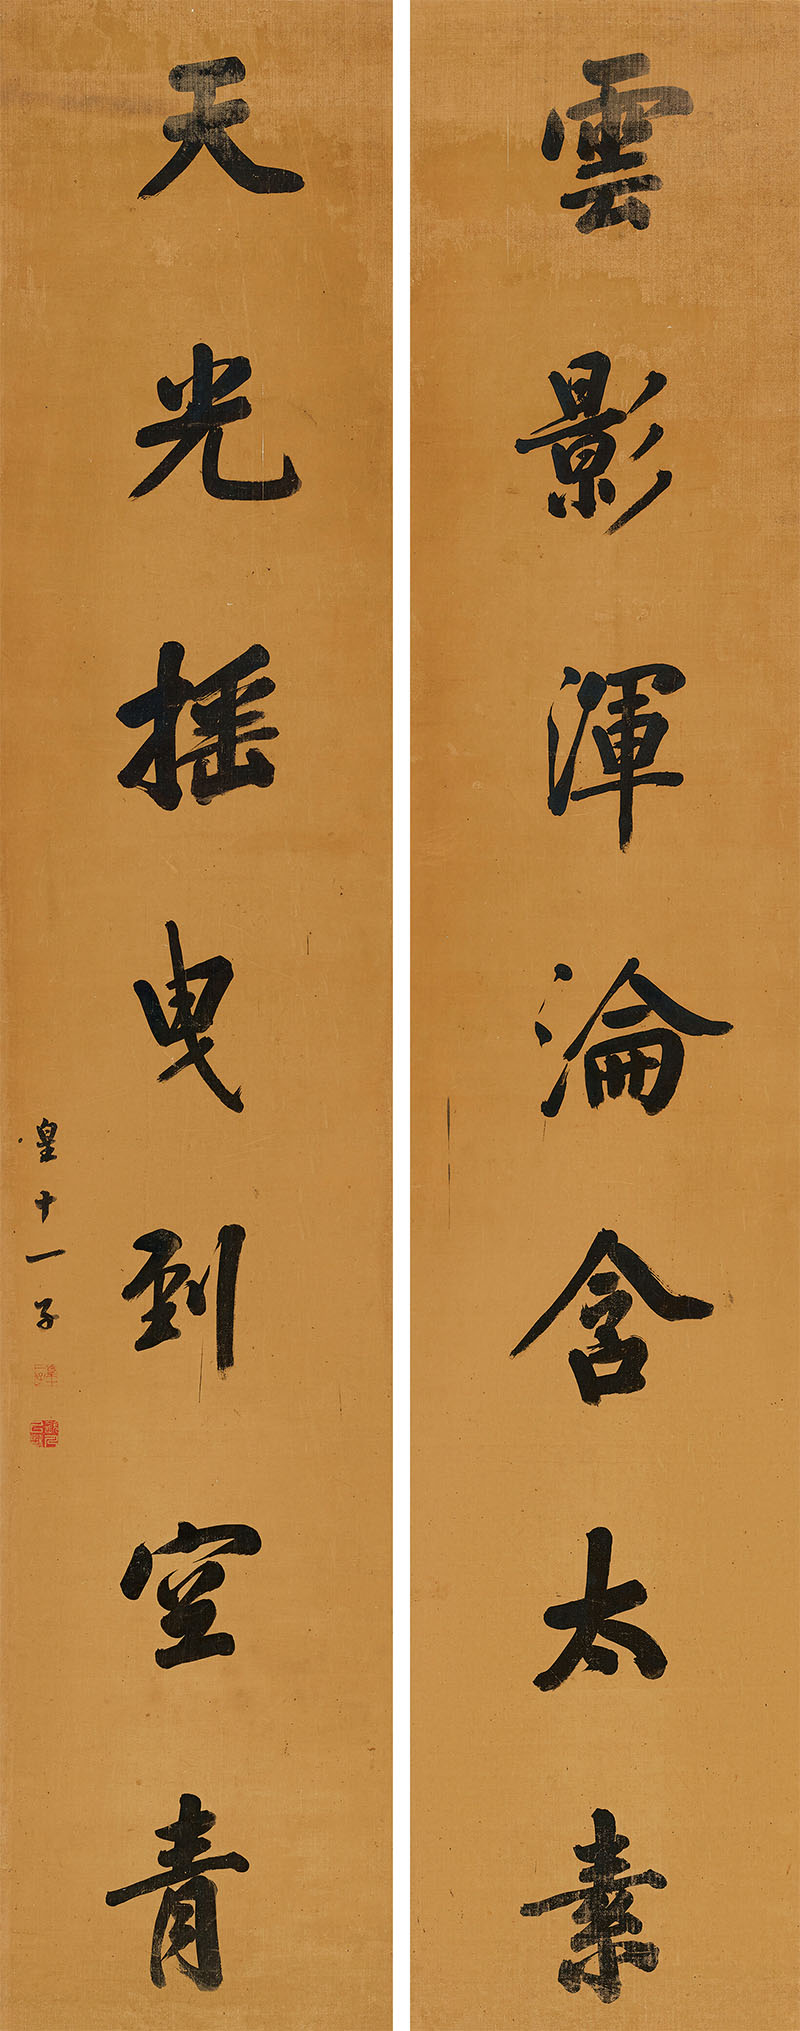 雲影渾淪含太素
天光摇曳到空青
皇十一子